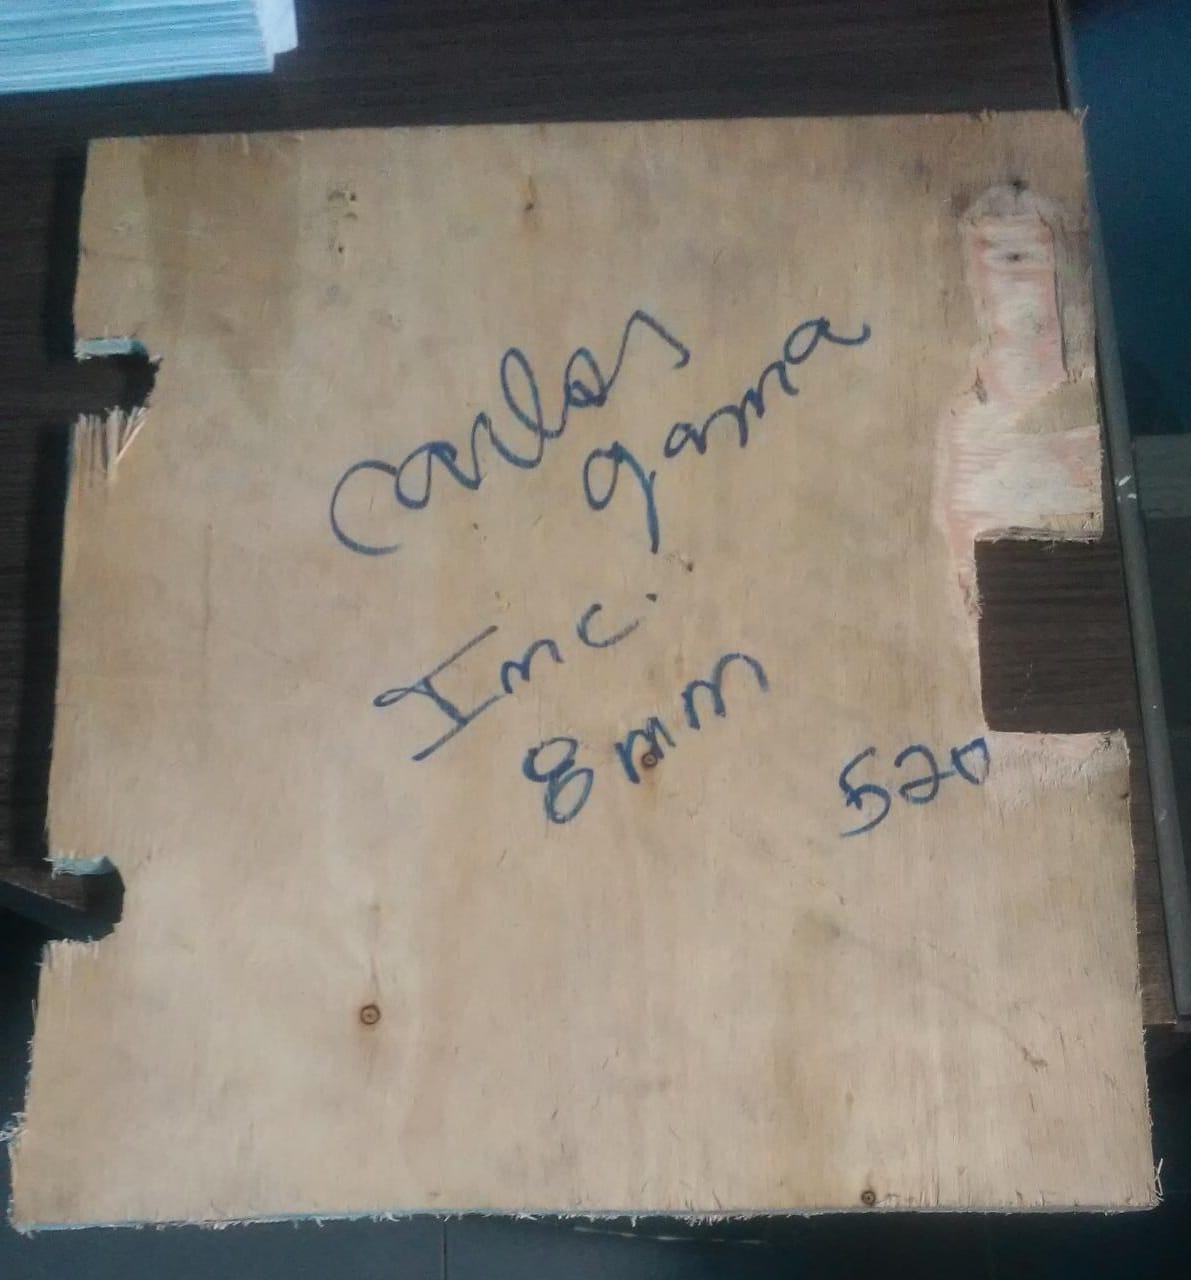 Carlos
gama
Inc.
8mm
520